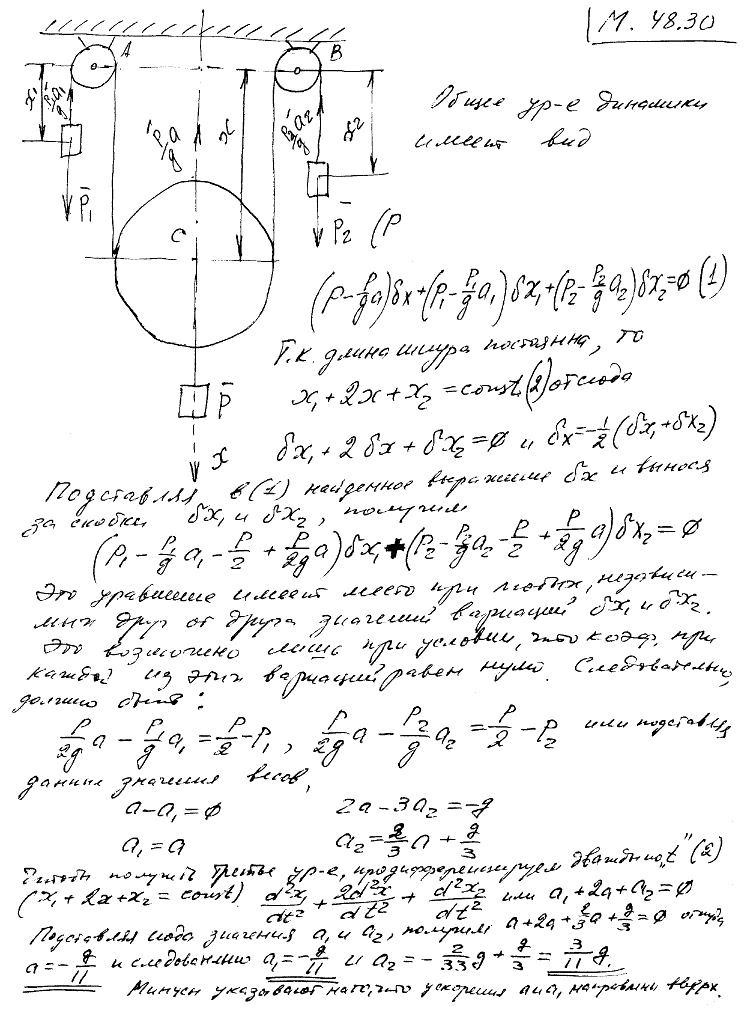 М. 48.30
A
B
x₁
P₁/g a₁
P/g a
x
P₂/g a₂
x₂
C
P̄₁
P̄₂ (P
P̄
x
Общее ур-е динамики
имеет вид
(P-P/g a)δx+(P₁-P₁/g a₁)δx₁+(P₂-P₂/g a₂)δx₂=0 (1)
Т.к. длина шнура постоянна, то
x₁+2x+x₂=const (2) отсюда
δx₁+2δx+δx₂=0 и δx=-1/2(δx₁+δx₂)
Подставляя в (1) найденное выражение δx и вынося
за скобки δx₁ и δx₂, получим
(P₁-P₁/g a₁-P/2+P/2g a)δx₁+(P₂-P₂/g a₂-P/2+P/2g a)δx₂=0
Это уравнение имеет место при любых, независи-
мых друг от друга значений вариаций δx₁ и δx₂.
Это возможно лишь при условии, что коэф. при
каждой из этих вариаций равен нулю. Следовательно,
должно быть:
P/2g a - P₁/g a₁ = P/2 - P₁, P/2g a - P₂/g a₂ = P/2 - P₂ или подставляя
данные значения весов,
a-a₁=0 2a-3a₂=-g
a₁=a a₂=2/3 a + g/3
Чтобы получить третье ур-е, продифференцируем дважды по „t" (2)
(x₁+2x+x₂=const) d²x₁/dt² + 2d²x/dt² + d²x₂/dt² или a₁+2a+a₂=0
Подставляя сюда значения a₁ и a₂, получим a+2a+2/3 a+g/3=0 откуда
a=-g/11 и следовательно a₁=-g/11 и a₂=-2/33 g+g/3=3/11 g.
Минусы указывают на то, что ускорения a и a₁ направлены вверх.